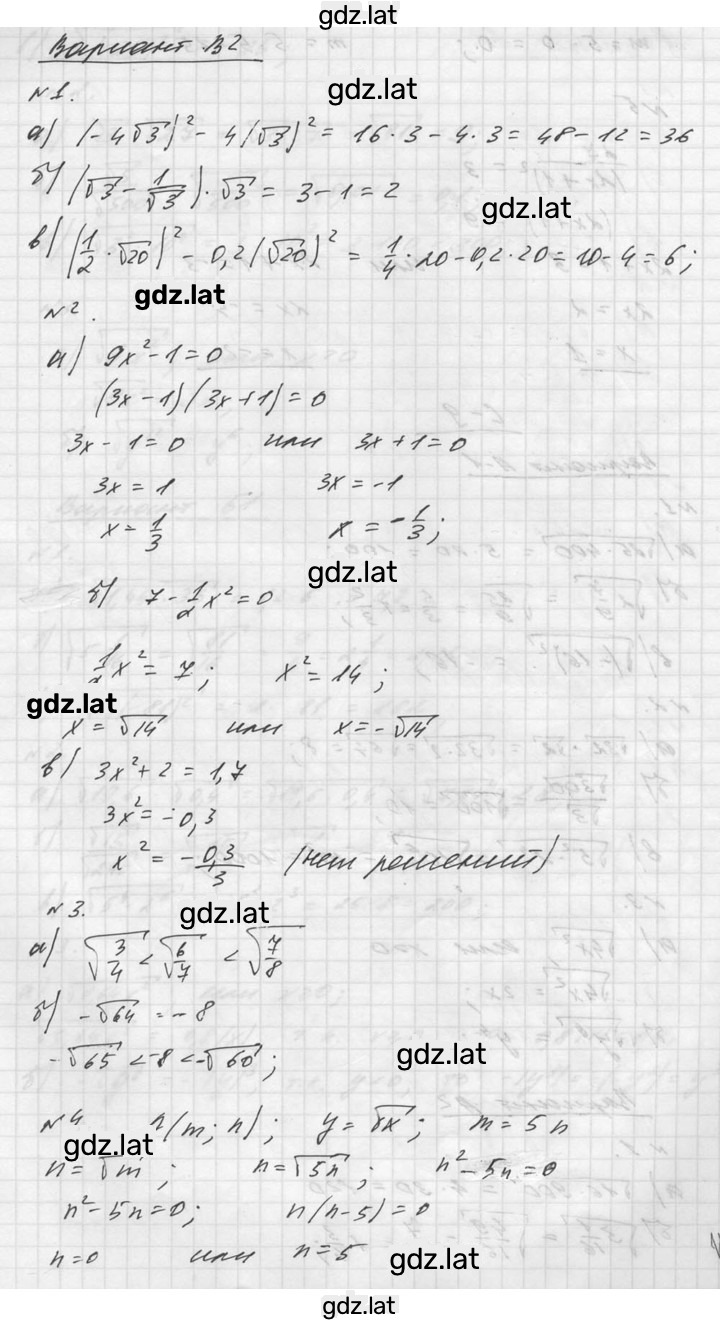 gdz.lat
Вариант В2
gdz.lat
№1.
а) (-4√3)² - 4(√3)² = 16·3 - 4·3 = 48 - 12 = 36
б) (√3 - 1/√3)·√3 = 3 - 1 = 2
gdz.lat
в) (1/2·√20)² - 0,2(√20)² = 1/4·20 - 0,2·20 = 10 - 4 = 6;
gdz.lat
№2.
а) 9x² - 1 = 0
(3x - 1)(3x + 1) = 0
3x - 1 = 0 или 3x + 1 = 0
3x = 1 3x = -1
x = 1/3 x = -1/3;
gdz.lat
б) 7 - 1/2x² = 0
1/2x² = 7; x² = 14;
gdz.lat
x = √14 или x = -√14
в) 3x² + 2 = 1,7
3x² = -0,3
x² = -0,3/3 (нет решений)
№3.
gdz.lat
а) √3/4 < √6/7 < √7/8
б) -√64 = -8
-√65 < -8 < -√60;
gdz.lat
№4 n(m; n); y = √x; m = 5n
gdz.lat
n = √m; n = √5n; n² - 5n = 0
n² - 5n = 0; n(n - 5) = 0
n = 0 или n = 5
gdz.lat
gdz.lat